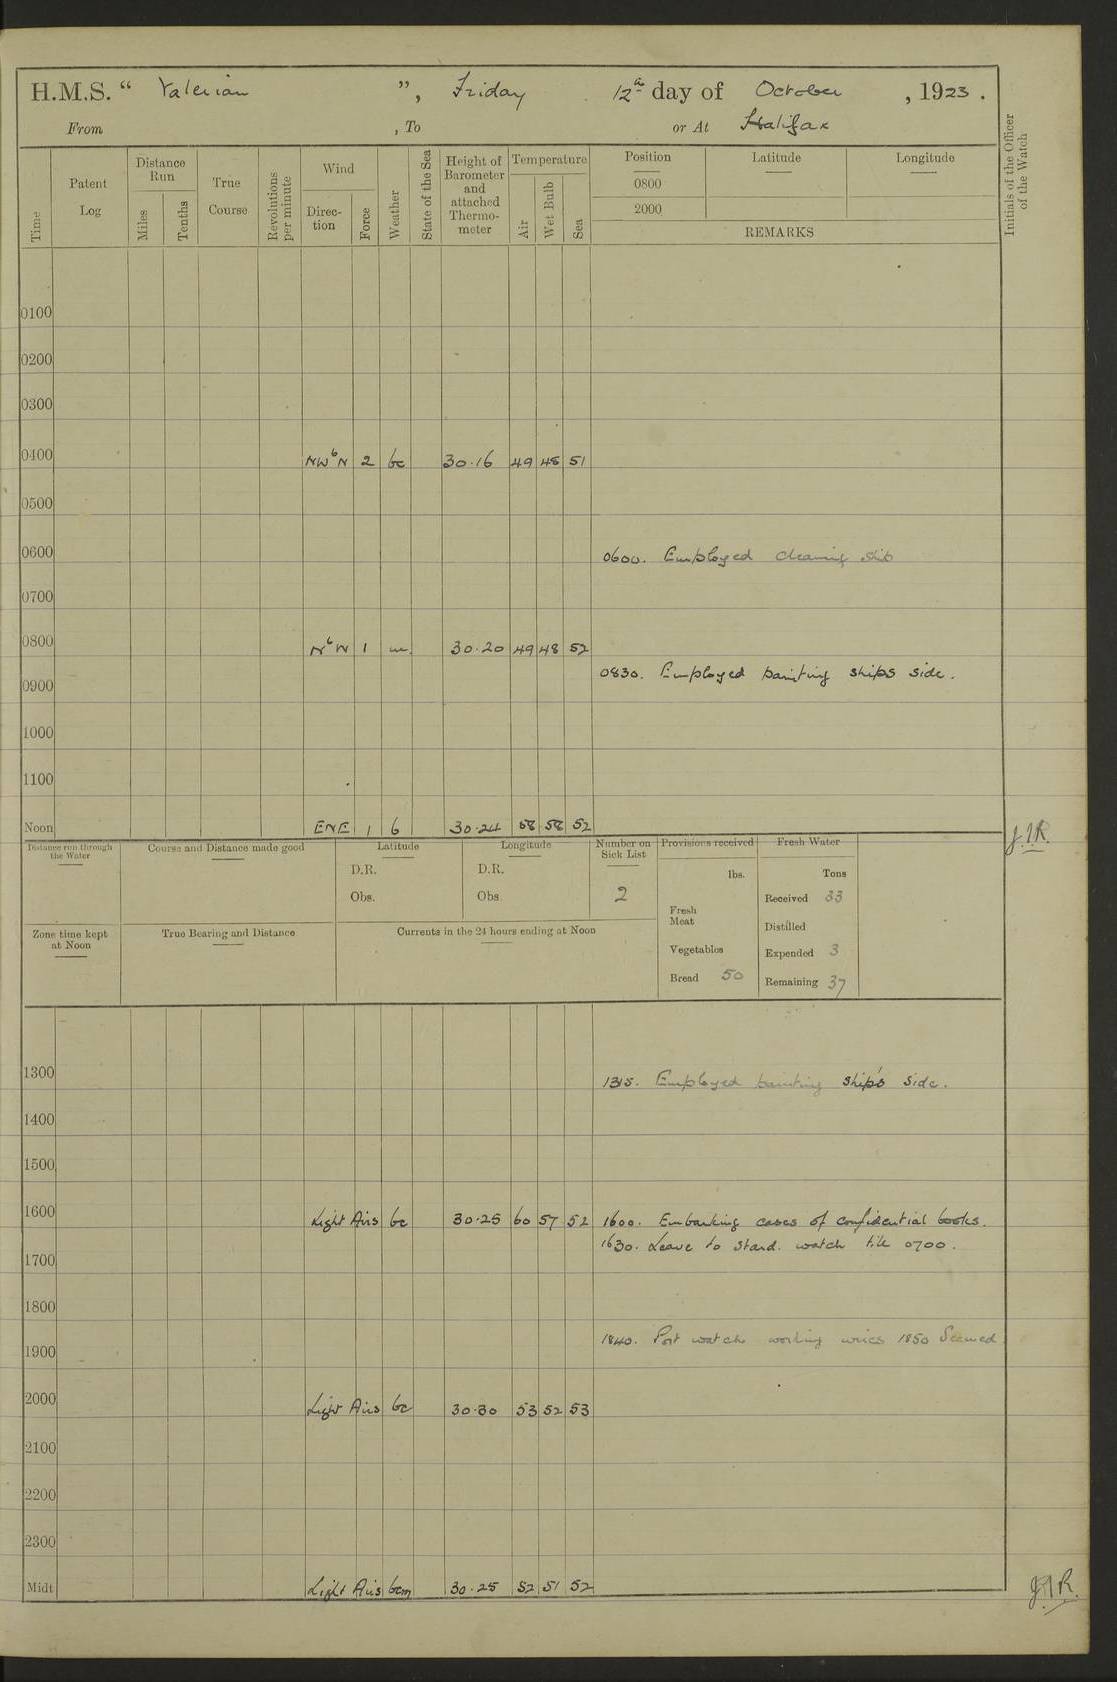 H.M.S. “ Valerian ”, Friday 12th day of October, 1923.
From , To or At Halifax
Time
Patent Log
Distance Run
Miles
Tenths
True Course
Revolutions per minute
Wind
Direc-tion
Force
Weather
State of the Sea
Height of Barometer and attached Thermo-meter
Temperature
Air
Wet Bulb
Sea
Position
0800
2000
Latitude
Longitude
REMARKS
Initials of the Officer of the Watch
0100
0200
0300
0400 NWbN 2 bc 30.16 49 48 51
0500
0600 0600. Employed cleaning ship
0700
0800 NbW 1 m 30.20 49 48 52
0830. Employed painting ships side.
0900
1000
1100
Noon ENE 1 b 30.24 58 52
J.A.R.
Distance run through the Water
Course and Distance made good
Latitude
D.R.
Obs.
Longitude
D.R.
Obs
Number on Sick List
2
Provisions received
lbs.
Fresh Meat
Vegetables
Bread 50
Fresh Water
Tons
Received 33
Distilled
Expended 3
Remaining 37
Zone time kept at Noon
True Bearing and Distance
Currents in the 24 hours ending at Noon
1300 1315. Employed painting ship's side.
1400
1500
1600 Light Airs bc 30.25 60 57 52 1600. Embarking cases of confidential books.
1630. Leave to Stard. watch till 0700.
1700
1800
1840. Port watch working wires 1850 Secured
1900
2000 Light Airs bc 30.30 53 52 53
2100
2200
2300
Midt Light Airs bcm 30.25 52 51 52
J.A.R.